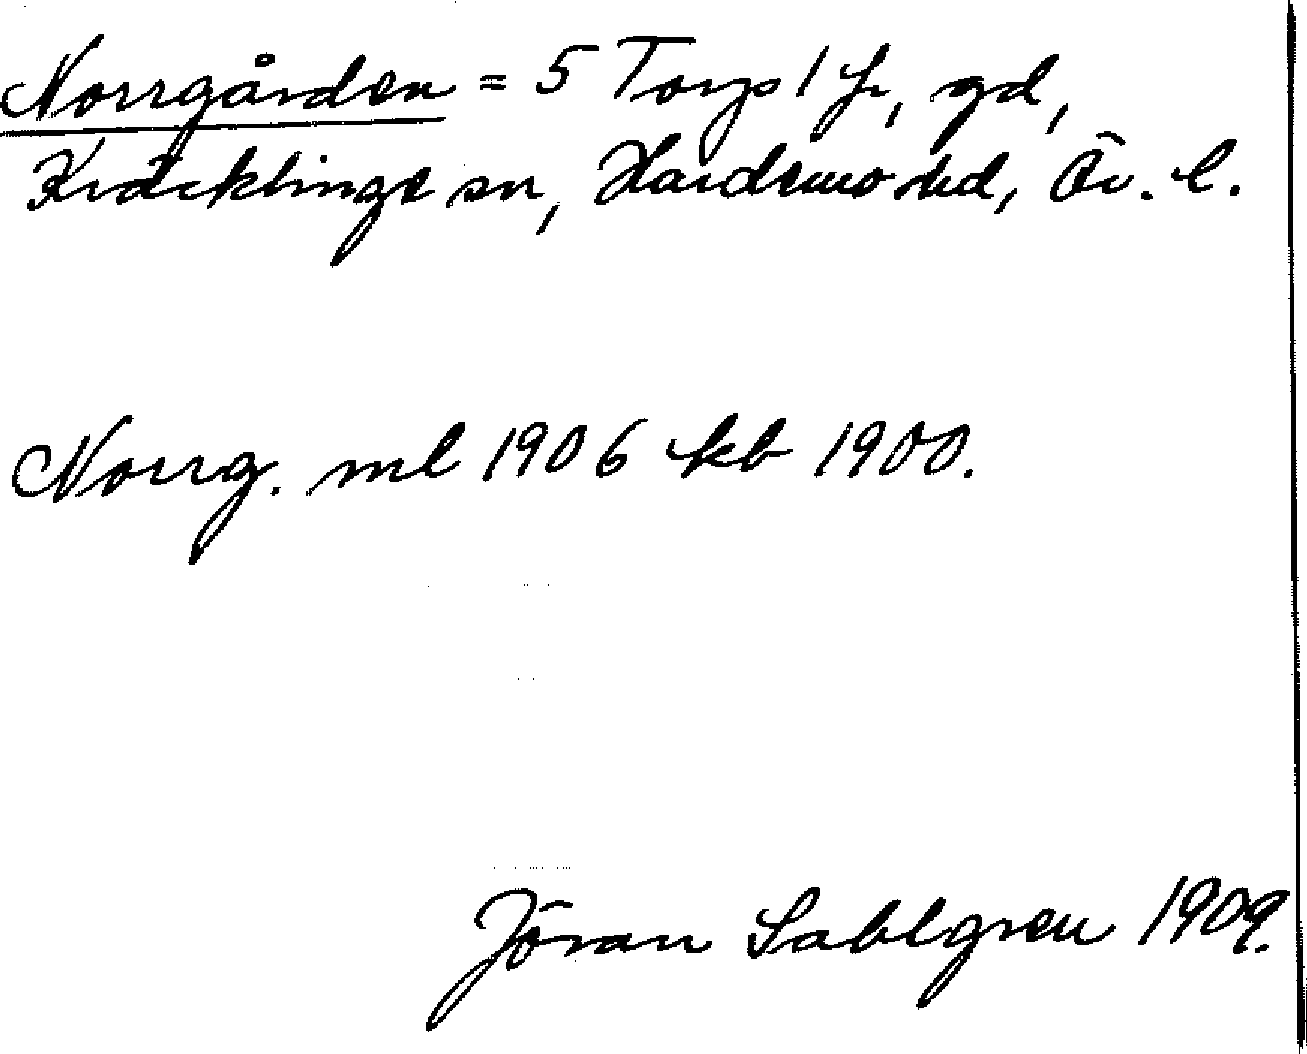 Norrgården = 5 Torp 1 fr, gd,
Kräcklinge sn, Hardemo hd, Ör. l.
Norrg. ml 1906 kb 1900.
Jöran Sahlgren 1909.